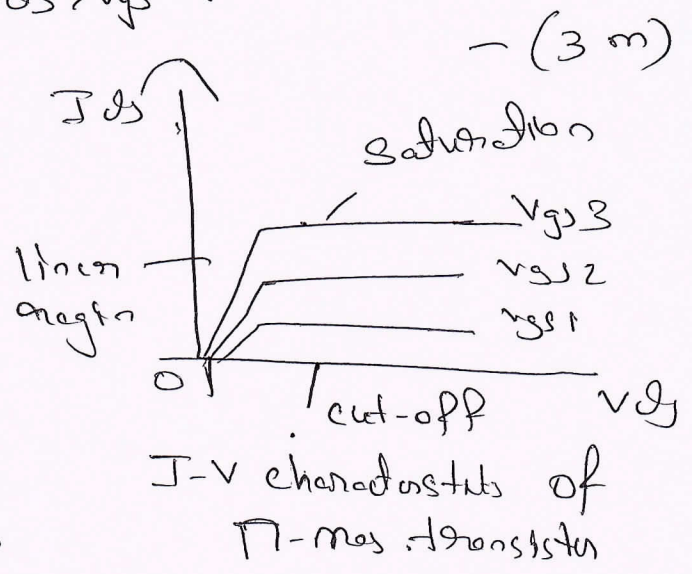 - (3 m)
Ids
saturation
Vgs3
linear
region
Vgs2
Vgs1
0
cut-off
Vds
I-V characteristics of
n-mos transistor